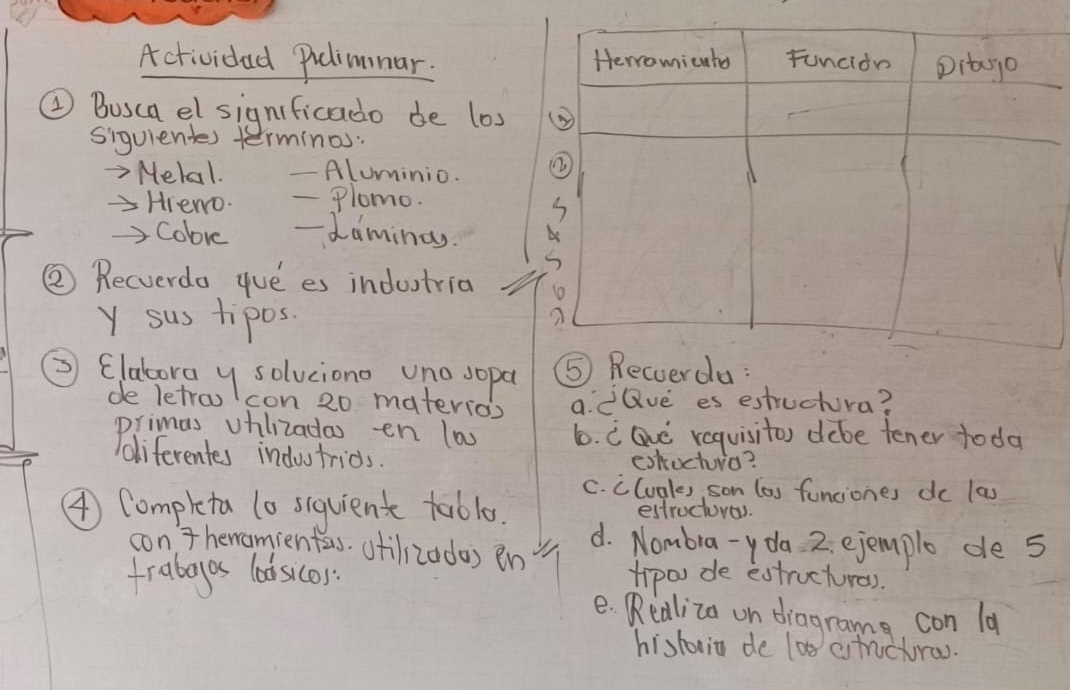 Actividad Preliminar.
① Busca el significado de los
siguientes términos:
→ Metal. — Aluminio.
→ Hierro. — Plomo.
→ Cobre — Láminas.
② Recuerda qué es industria
y sus tipos.
③ Elabora y soluciona una sopa
de letras con 20 materias
primas utilizadas en las
diferentes industrias.
④ Completa la siguiente tabla.
con 7 herramientas. utilizadas en
trabajos básicos:
Herramienta Función Dibujo
①
②
3
4
5
6
7
⑤ Recuerda:
a. ¿Qué es estructura?
b. ¿Qué requisitos debe tener toda
estructura?
c. ¿Cuáles son las funciones de las
estructuras.
d. Nombra - y da 2. ejemplo de 5
tipos de estructuras.
e. Realiza un diagrama con la
historia de las estructuras.